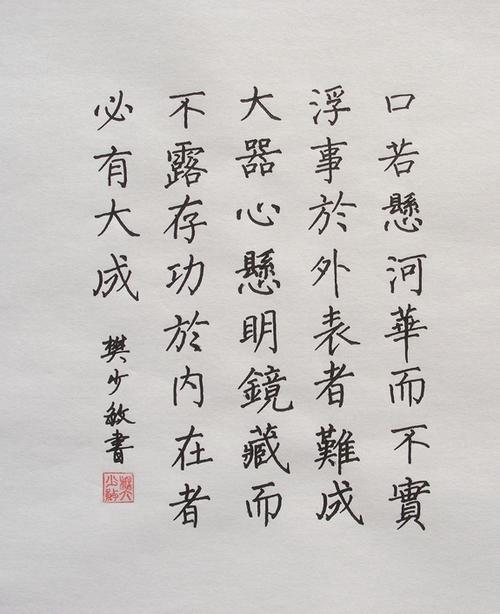 口若懸河華而不實
浮事於外表者難成
大器心懸明鏡藏而
不露存功於内在者
必有大成
樊少敏書